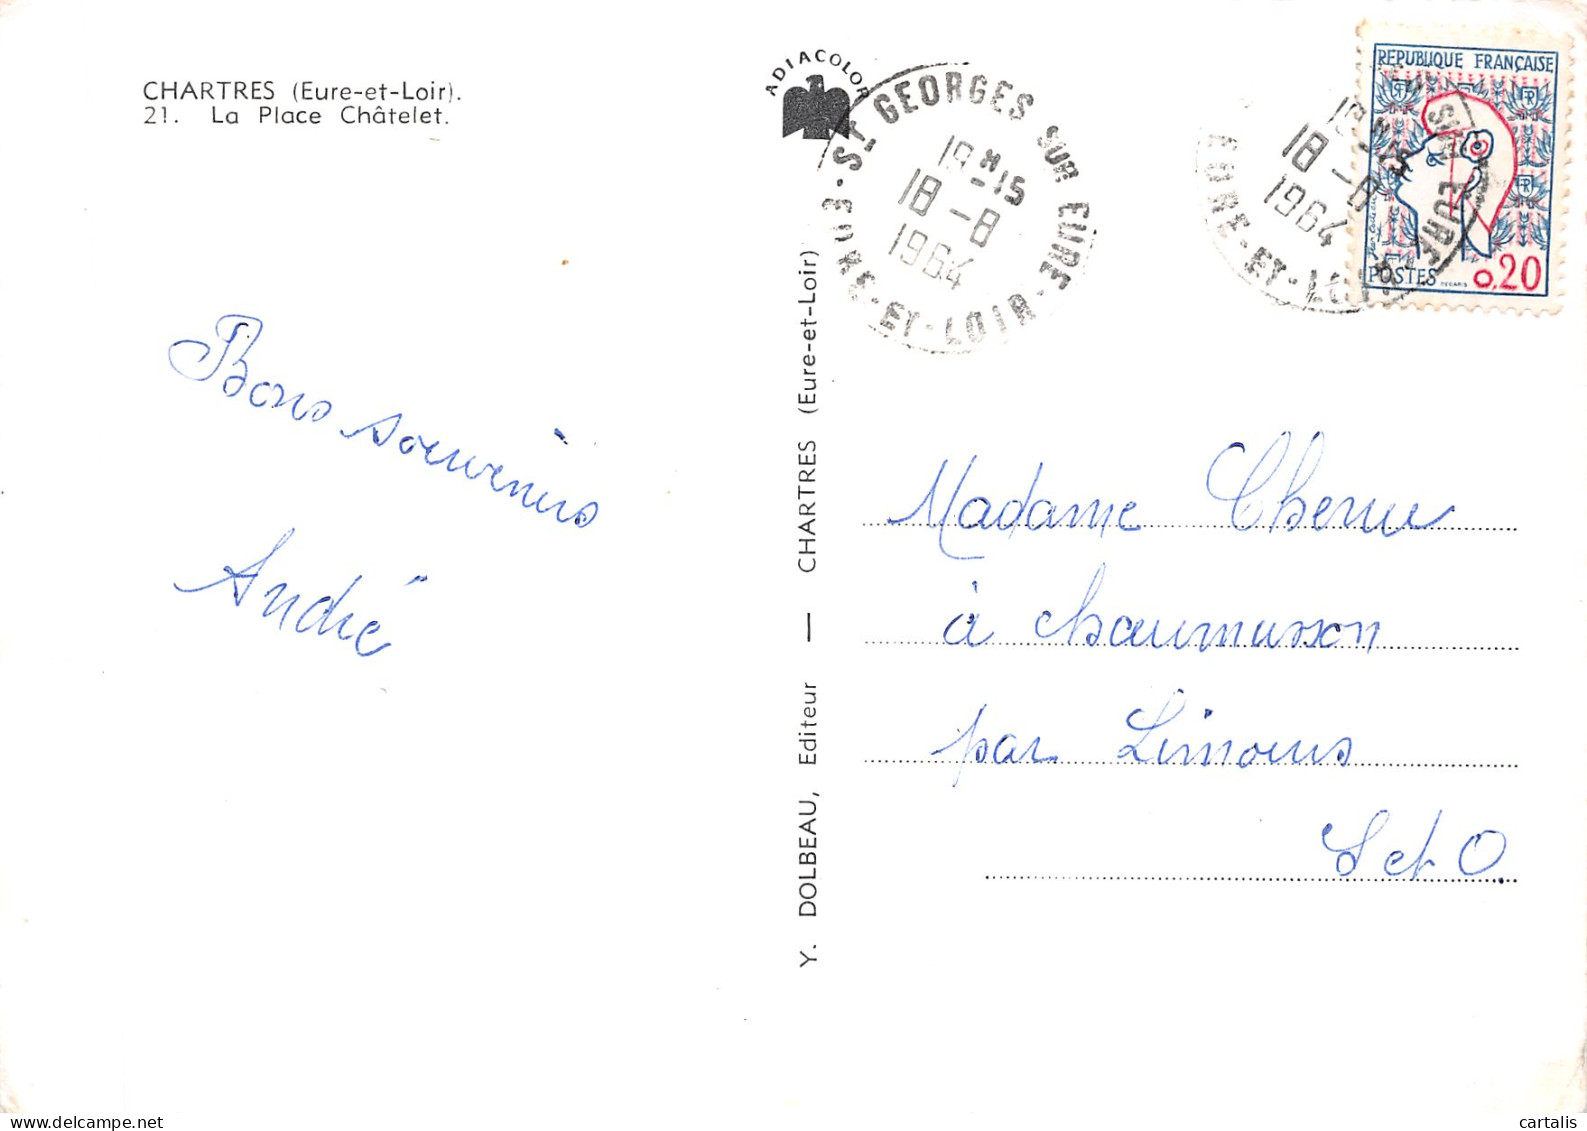 CHARTRES (Eure-et-Loir).
21. La Place Châtelet.
ADIACOLOR
ST GEORGES SUR EURE
EURE-ET-LOIR
19H15
18-8
1964
18-8
1964
EURE-ET-LOIR
REPUBLIQUE FRANÇAISE
POSTES
0,20
Bons souvenirs
André
Y. DOLBEAU, Editeur — CHARTRES (Eure-et-Loir)
Madame Cheru
à Chaumusson
par Limours
S et O.
www.delcampe.net
cartalis